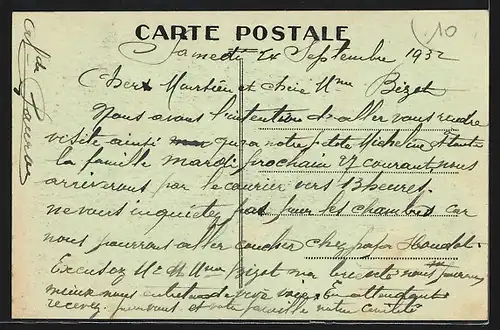 CARTE POSTALE
10
Samedi 24 Septembre 1932
Cher Monsieur et chère Mme Bizet
Nous avons l'intention d'aller vous rendre
visite ainsi qu'a notre petite Micheline
la famille mardi prochain 27 courant, nous
arriverons par le courier vers 13 heures,
ne vous inquietez pas pour les chambres car
nous pourrons aller coucher chez papa
Excusez Mr M Mme Bizot ma nous
mieux nous de vive voix. En attendant
recevez et votre famille notre amitié